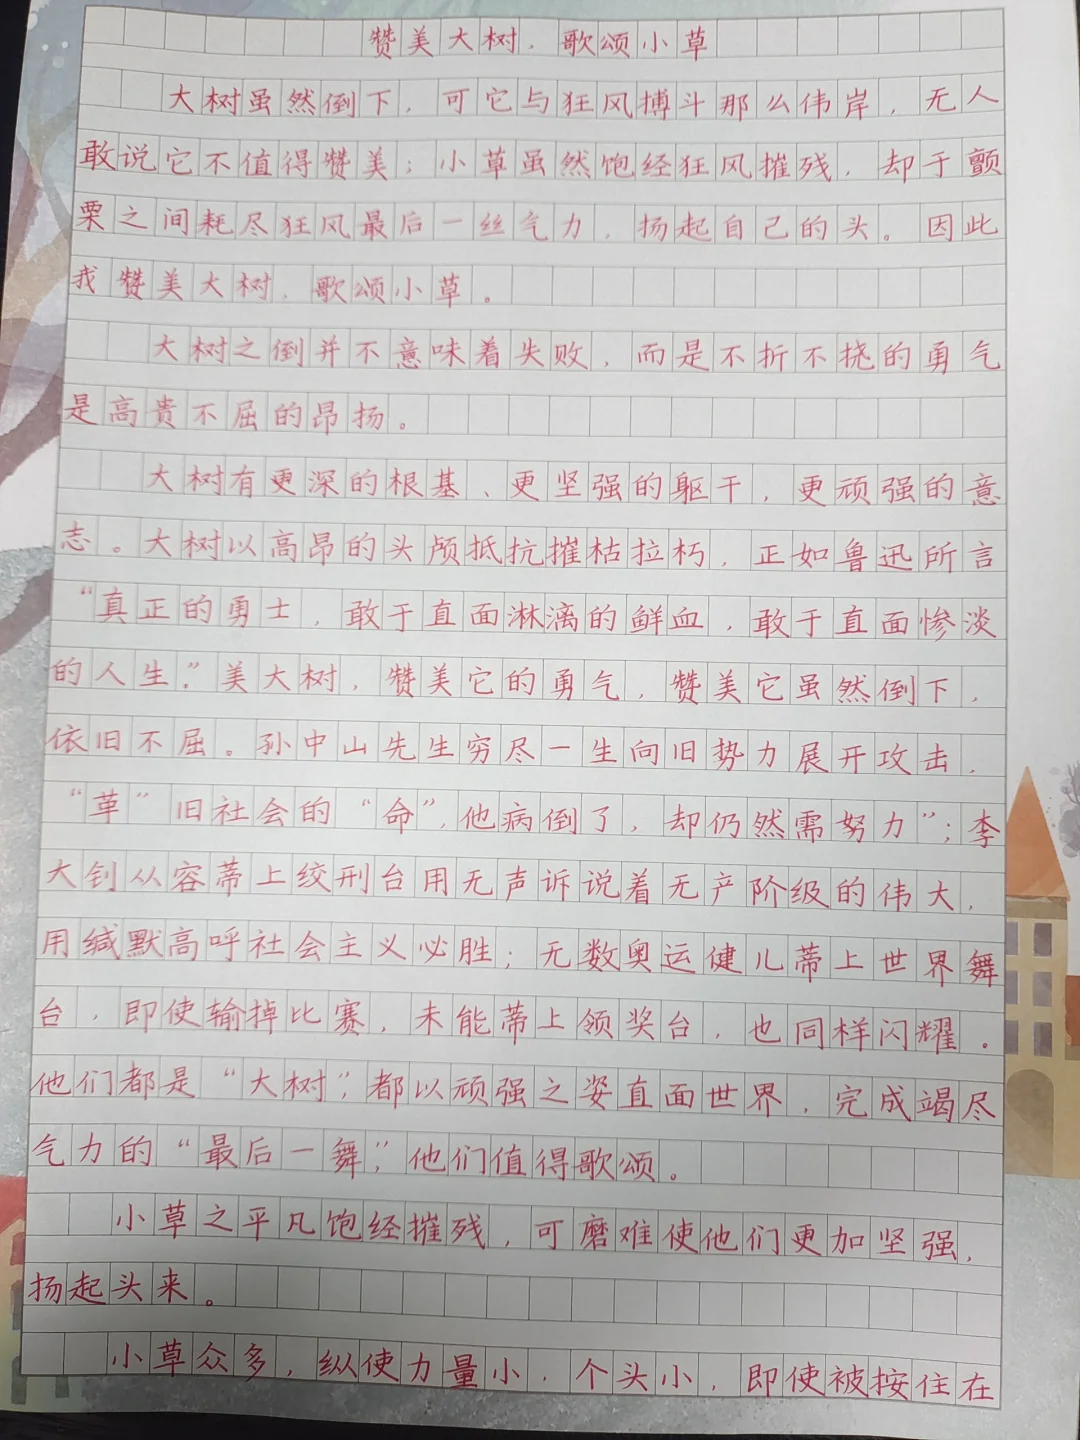 赞美大树，歌颂小草
大树虽然倒下，可它与狂风搏斗那么伟岸，无人
敢说它不值得赞美；小草虽然饱经狂风摧残，却于颤
栗之间耗尽狂风最后一丝气力，扬起自己的头。因此
我赞美大树，歌颂小草。
大树之倒并不意味着失败，而是不折不挠的勇气
是高贵不屈的昂扬。
大树有更深的根基、更坚强的躯干，更顽强的意
志。大树以高昂的头颅抵抗摧枯拉朽，正如鲁迅所言
“真正的勇士，敢于直面淋漓的鲜血，敢于直面惨淡
的人生”。美大树，赞美它的勇气，赞美它虽然倒下，
依旧不屈。孙中山先生穷尽一生向旧势力展开攻击，
“革”旧社会的“命”，他病倒了，却仍然需努力”；李
大钊从容蒂上绞刑台用无声诉说着无产阶级的伟大，
用缄默高呼社会主义必胜；无数奥运健儿蒂上世界舞
台，即使输掉比赛，未能蒂上领奖台，也同样闪耀。
他们都是“大树”，都以顽强之姿直面世界，完成竭尽
气力的“最后一舞”，他们值得歌颂。
小草之平凡饱经摧残，可磨难使他们更加坚强，
扬起头来。
小草众多，纵使力量小，个头小，即使被按住在